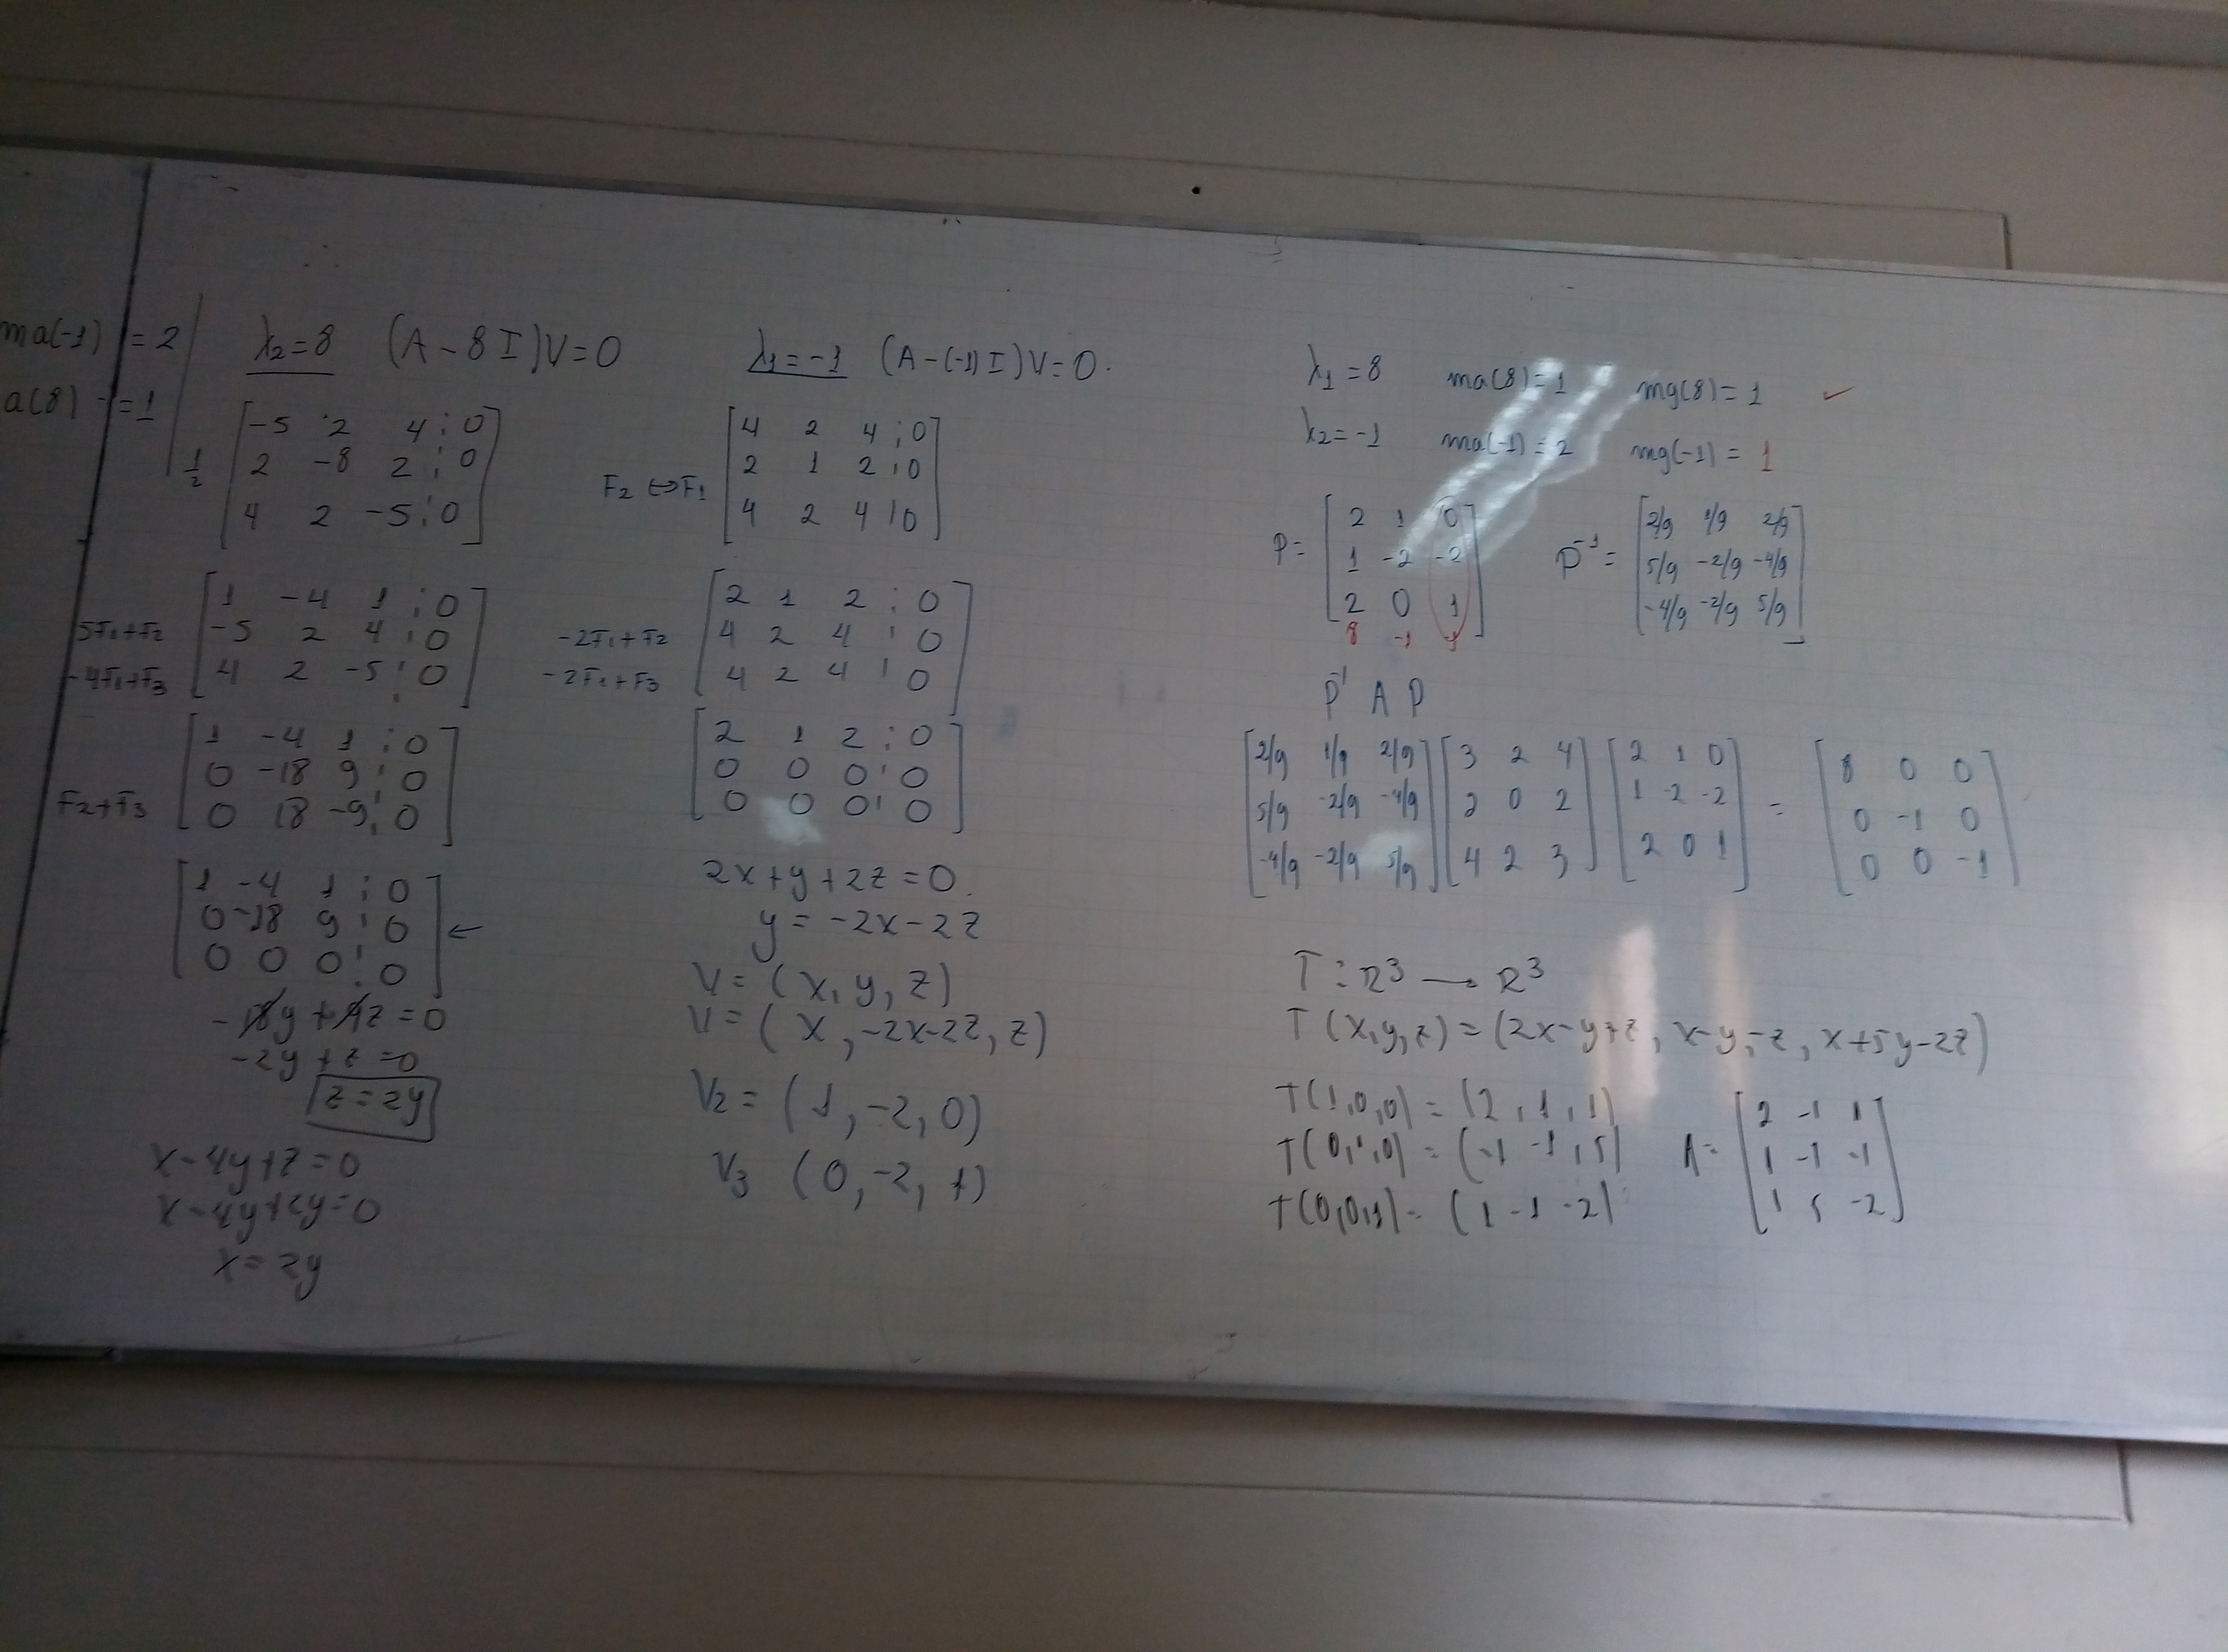 ma(-1) = 2
a(8) = 1
λ₂=8 (A-8I)V=0
1/2
[-5 2 4 ¦ 0]
[2 -8 2 ¦ 0]
[4 2 -5 ¦ 0]
5F₁+F₂
-4F₁+F₃
[1 -4 1 ¦ 0]
[-5 2 4 ¦ 0]
[4 2 -5 ¦ 0]
F₂+F₃
[1 -4 1 ¦ 0]
[0 -18 9 ¦ 0]
[0 18 -9 ¦ 0]
[1 -4 1 ¦ 0]
[0 -18 9 ¦ 0] ←
[0 0 0 ¦ 0]
-18y + 9z = 0
-2y + z = 0
z = 2y
x-4y+z=0
x-4y+2y=0
x=2y
λ₁=-1 (A-(-1)I)V=0.
F₂ ↔ F₁
[4 2 4 ¦ 0]
[2 1 2 ¦ 0]
[4 2 4 ¦ 0]
-2F₁+F₂
-2F₁+F₃
[2 1 2 ¦ 0]
[4 2 4 ¦ 0]
[4 2 4 ¦ 0]
[2 1 2 ¦ 0]
[0 0 0 ¦ 0]
[0 0 0 ¦ 0]
2x+y+2z=0.
y=-2x-2z
V=(x,y,z)
V=(x,-2x-2z,z)
V₂=(1,-2,0)
V₃ (0,-2,1)
λ₁=8 ma(8)=1 mg(8)=1 ✓
λ₂=-1 ma(-1)=2 mg(-1)=1
P=
[2 1 0]
[1 -2 -2]
[2 0 1]
8 -1 -1
P⁻¹=
[2/9 1/9 2/9]
[5/9 -2/9 -4/9]
[-4/9 -2/9 5/9]
P⁻¹ A P
[2/9 1/9 2/9] [3 2 4] [2 1 0] [8 0 0]
[5/9 -2/9 -4/9] [2 0 2] [1 -2 -2] = [0 -1 0]
[-4/9 -2/9 5/9] [4 2 3] [2 0 1] [0 0 -1]
T: R³ → R³
T(x,y,z)=(2x-y+z, x-y-z, x+5y-2z)
T(1,0,0)=(2,1,1)
T(0,1,0)=(-1 -1,5)
T(0,0,1)=(1 -1 -2)
A=
[2 -1 1]
[1 -1 -1]
[1 5 -2]